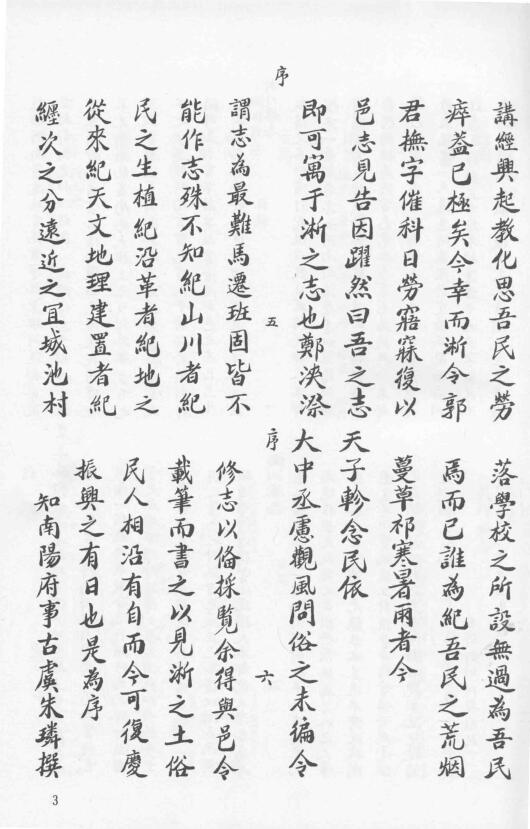 序
講經興起教化思吾民之勞
瘁葢已極矣今幸而淅令郭
君撫字催科日勞寤寐復以
邑志見告因躍然曰吾之志
即可寓于淅之志也鄭浹漈
五
謂志為最難馬遷班固皆不
能作志殊不知紀山川者紀
民之生植紀沿革者紀地之
從來紀天文地理建置者紀
纏次之分遠近之宜城池村
落學校之所設無過為吾民
焉而已誰為紀吾民之荒烟
蔓草祁寒暑雨者今
天子軫念民依
大中丞慮觀風問俗之未編令
序
六
修志以俻採覧余得與邑令
載筆而書之以見淅之土俗
民人相沿有自而今可復慶
振興之有日也是為序
知南陽府事古虞朱璘撰
3